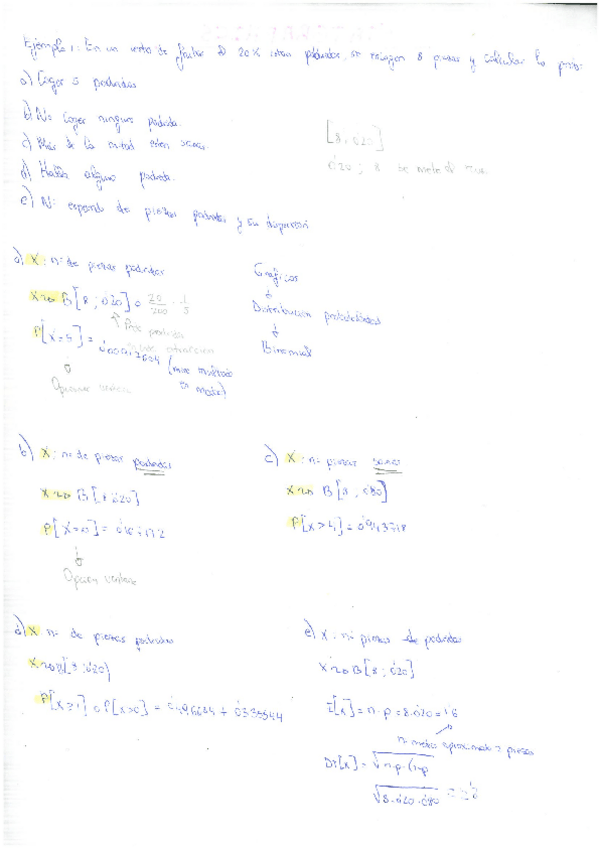 Ejemplo 1: En un cesto de frutas el 20% estan podridas, se recogen 8 piezas y calcular la prob:
a) Coger 5 podridas
b) No coger ninguna podrida.
c) Más de la mitad esten sanas.
d) Habra alguna podrida.
e) Nº esperado de piezas podridas y su dispersión
[8, 0'20]
0'20; 8 se mete
a) X: nº de piezas podridas
X ~ B[8; 0'20]
P[X=5] =
Opcion ventana
Graficos
↓
Distribucion probabilidades
↓
Binomial
b) X: nº de piezas podridas
X ~ B[8 0'20]
P[X=0] =
↓
Opcion ventana
c) X: nº piezas sanas
X ~ B[8, 0'80]
P[X>4] = 0'943718
d) X nº de piezas podridas
X ~ B[8; 0'20]
P[X≥1] o P[X>0] =
e) X: nº piezas podridas
X ~ B[8; 0'20]
E[X] = n·p = 8·0'20 = 1'6
nº medio aproximado 2 piezas
DT[X] = √n·p·(1-p
√8·0'20·0'80